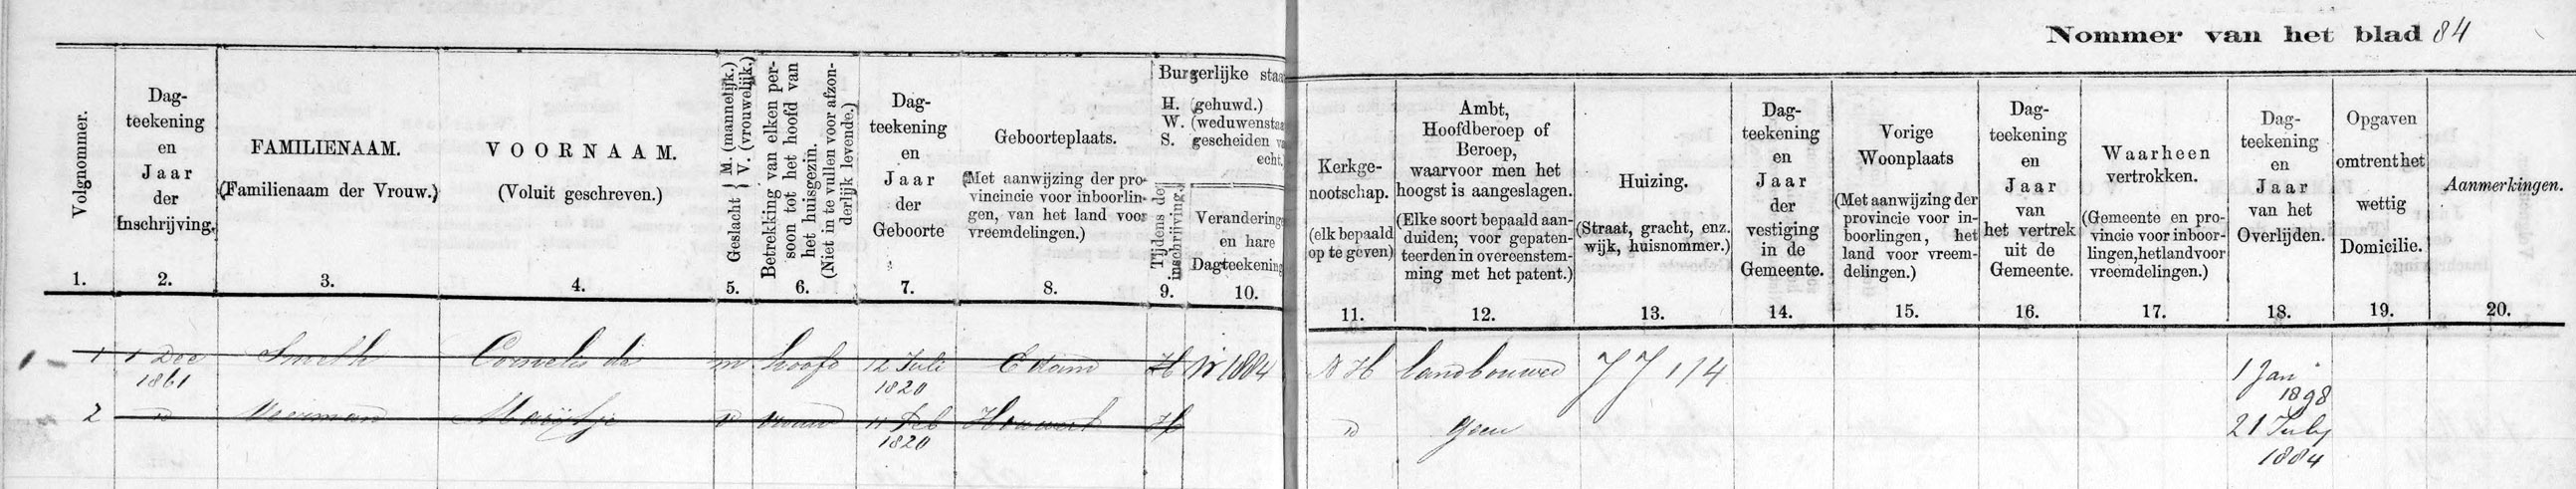 Nommer van het blad 84
Volgnommer.
1.
Dag-
teekening
en
Jaar
der
Inschrijving.
2.
FAMILIENAAM.
(Familienaam der Vrouw.)
3.
VOORNAAM.
(Voluit geschreven.)
4.
Geslacht { M. (mannelijk.)
V. (vrouwelijk.)
5.
Betrekking van elken per-
soon tot het hoofd van
het huisgezin.
(Niet in te vullen voor afzon-
derlijk levende.)
6.
Dag-
teekening
en
Jaar
der
Geboorte
7.
Geboorteplaats.
(Met aanwijzing der pro-
vincincie voor inboorlin-
gen, van het land voor
vreemdelingen.)
8.
Burgerlijke staa
H. (gehuwd.)
W. (weduwenstaa
S. gescheiden v
echt.
Tijdens de
inschrijving.
9.
Verandering
en hare
Dagteekening
10.
Kerkge-
nootschap.
(elk bepaald
op te geven)
11.
Ambt,
Hoofdberoep of
Beroep,
waarvoor men het
hoogst is aangeslagen.
(Elke soort bepaald aan-
duiden; voor gepaten-
teerden in overeenstem-
ming met het patent.)
12.
Huizing.
(Straat, gracht, enz.
wijk, huisnommer.)
13.
Dag-
teekening
en
Jaar
der
vestiging
in de
Gemeente.
14.
Vorige
Woonplaats
(Met aanwijzing der
provincie voor in-
boorlingen, het
land voor vreem-
delingen.)
15.
Dag-
teekening
en
Jaar
van
het vertrek
uit de
Gemeente.
16.
Waarheen
vertrokken.
(Gemeente en pro-
vincie voor inboor-
lingen, het land voor
vreemdelingen.)
17.
Dag-
teekening
en
Jaar
van het
Overlijden.
18.
Opgaven
omtrent het
wettig
Domicilie.
19.
Aanmerkingen.
20.
1 1 Dec 1861 Smith Cornelis de m hoofd 12 Juli 1820 Edam H W 1884 N H landbouwer 114 1 Jan 1898
2 Veerman Marijtje vrouw 11 Feb 1820 H geen 21 July 1884